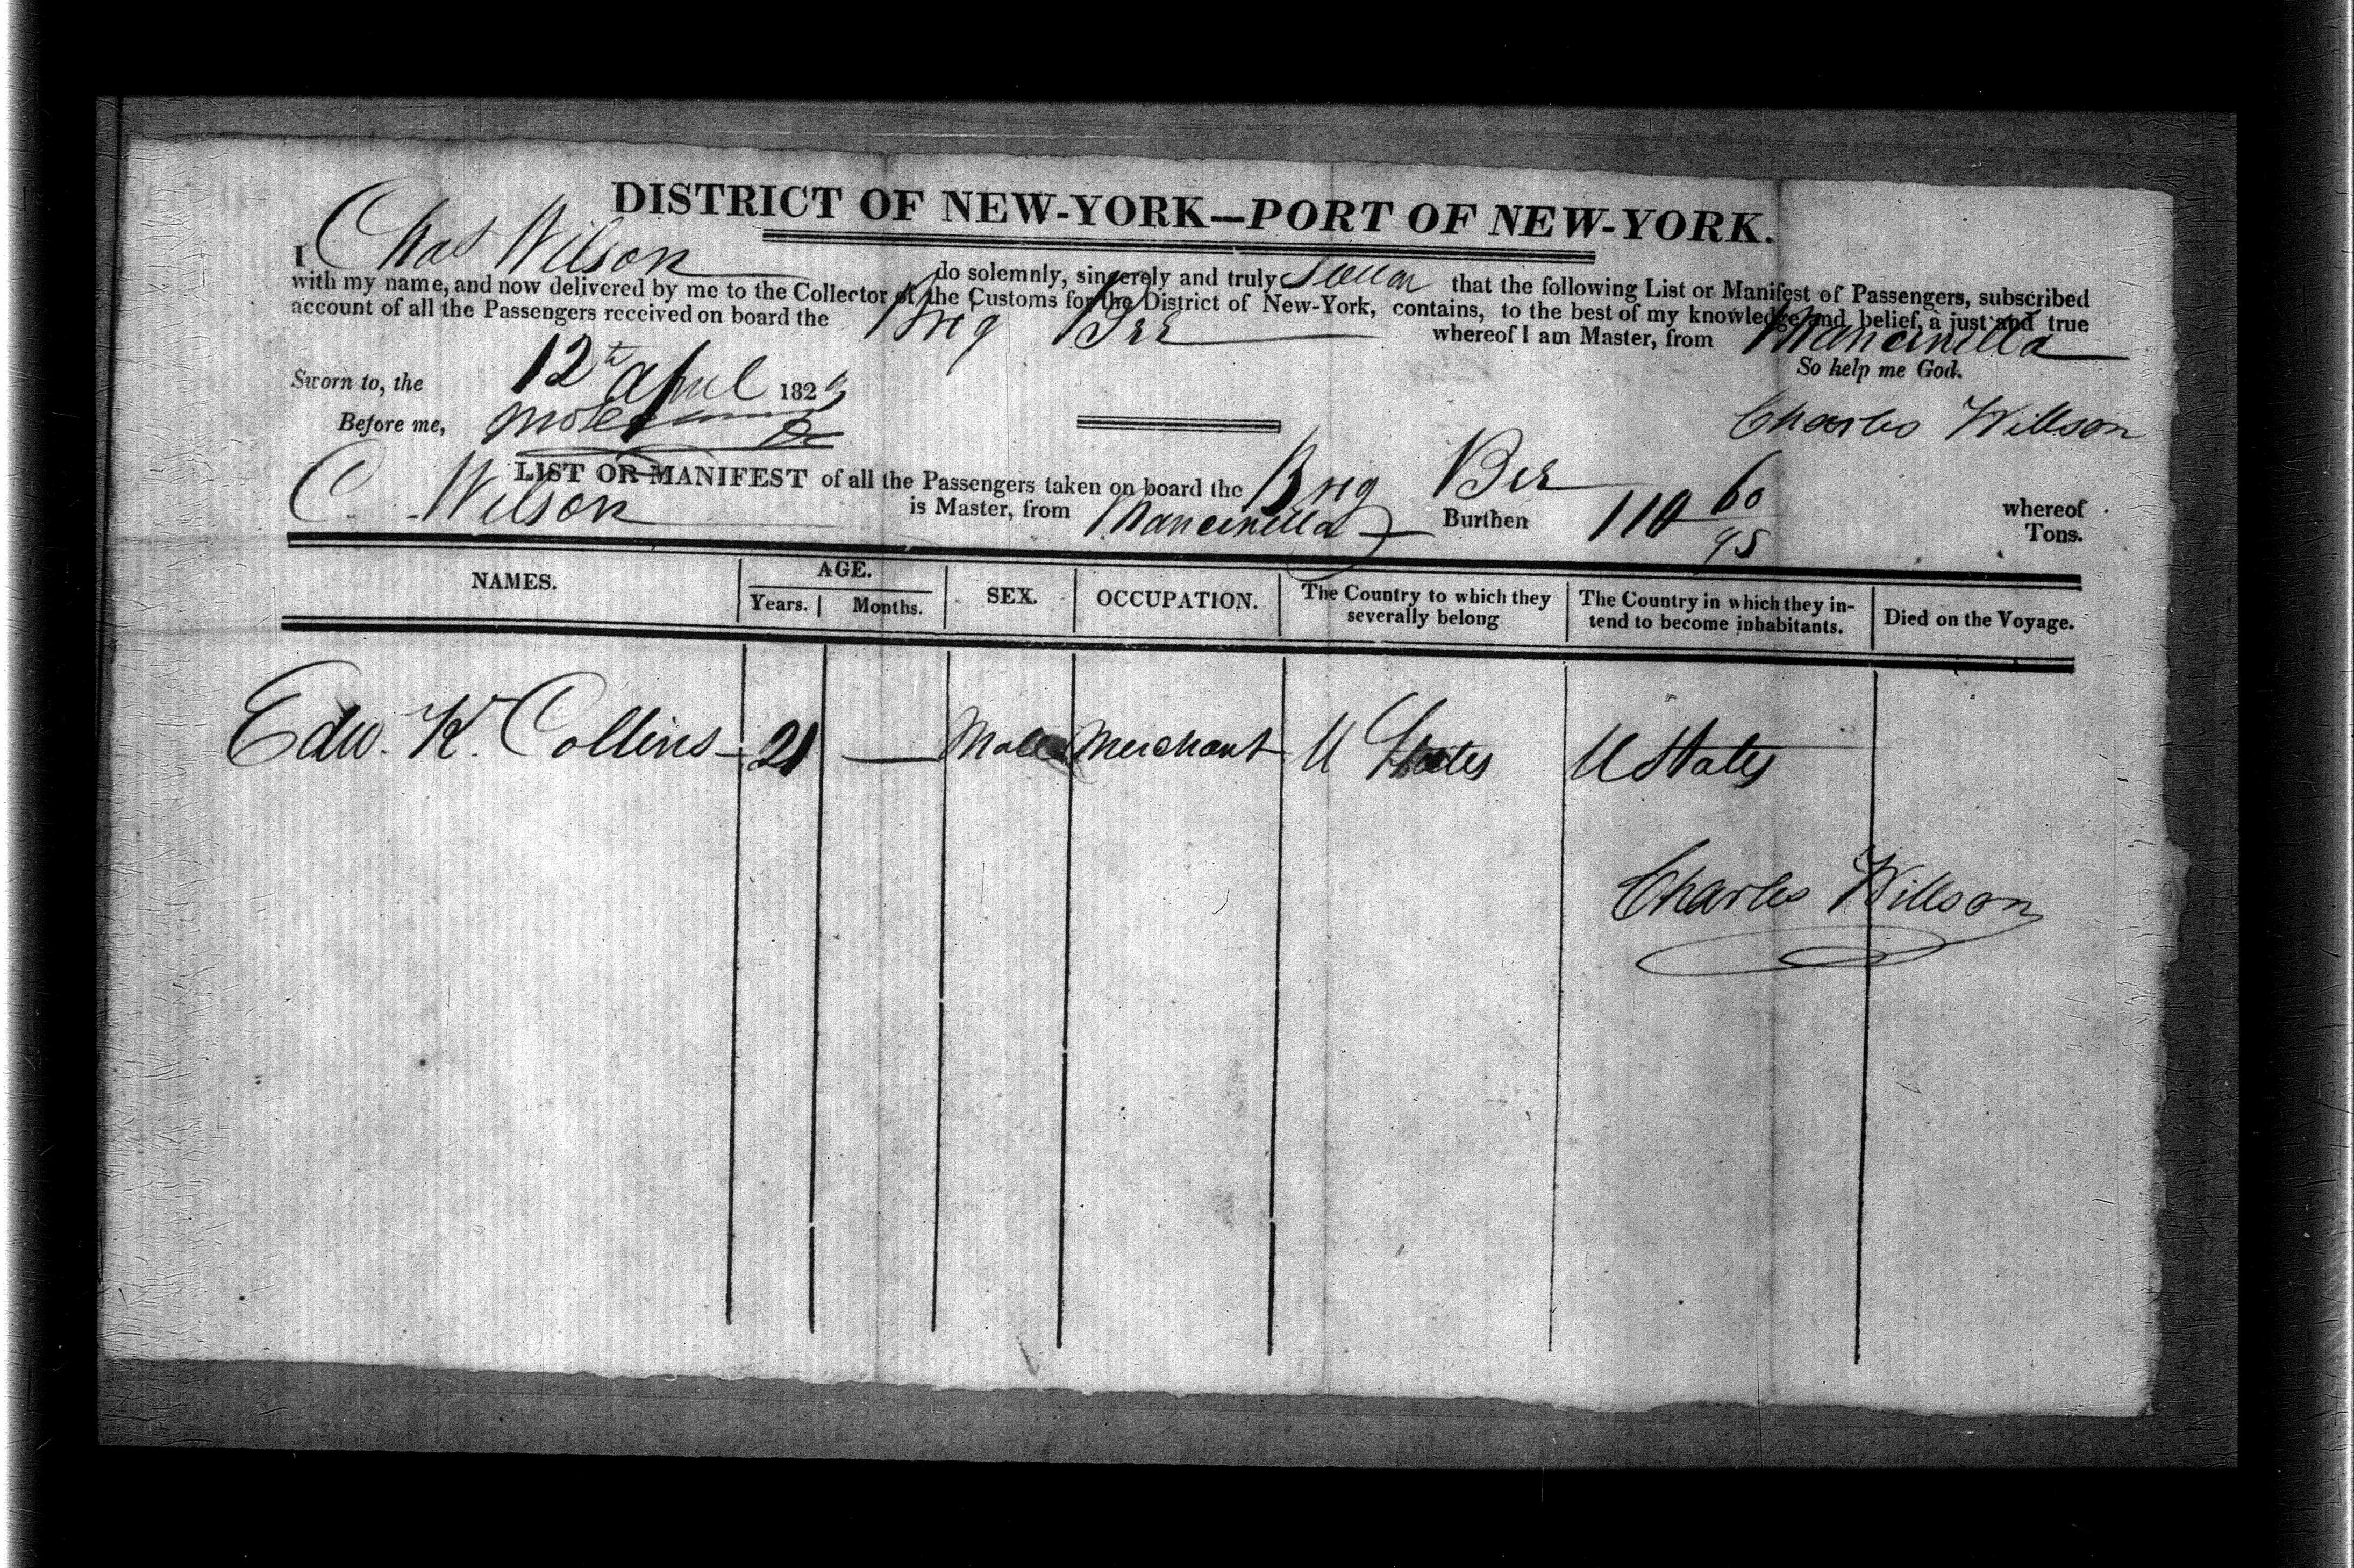 DISTRICT OF NEW-YORK—PORT OF NEW-YORK.
I Chas Wilson do solemnly, sincerely and truly Swear that the following List or Manifest of Passengers, subscribed
with my name, and now delivered by me to the Collector of the Customs for the District of New-York, contains, to the best of my knowledge and belief, a just and true
account of all the Passengers received on board the Brig Bee whereof I am Master, from Mancinella
So help me God.
Sworn to, the 12th April 182
Before me,
Charles Willson
LIST OR MANIFEST of all the Passengers taken on board the Brig Bee whereof
C. Wilson is Master, from Mancinella Burthen 110 60/95 Tons.
NAMES. AGE. SEX. OCCUPATION. The Country to which they severally belong The Country in which they in-tend to become inhabitants. Died on the Voyage.
Years. Months.
Edw. K. Collins 21 — Male Merchant U States U States
Charles Willson